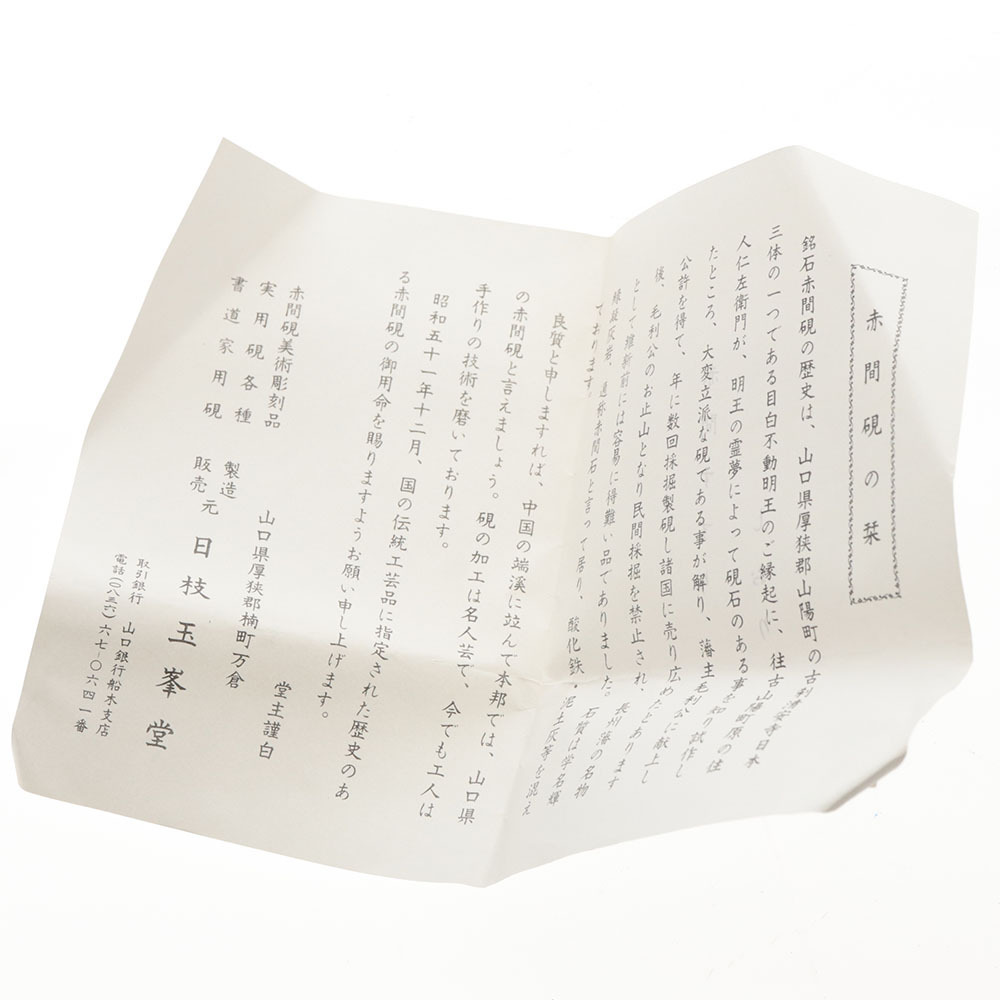 赤間硯の栞
銘石赤間硯の歴史は、山口県厚狭郡山陽町の古刹 日本
三体の一つである目白不動明王のご縁起に、往古山陽町原の住
人仁左衛門が、明王の霊夢によって硯石のある事を知り試作し
たところ、大変立派な硯である事が解り、藩主毛利公に献上し
公許を得て、年に数回採掘製硯し諸国に売り広めたとあります
後、毛利公のお止山となり民間採掘を禁止され、長州藩の名物
として維新前には容易に得難い品でありました。石質は学名輝
緑凝灰岩、通称赤間石と言って居り、酸化鉄・泥土灰等を混え
ております。
良質と申しますれば、中国の端溪に竝んで本邦では、山口県
の赤間硯と言えましょう。硯の加工は名人芸で、今でも工人は
手作りの技術を磨いております。
昭和五十一年十二月、国の伝統工芸品に指定された歴史のあ
る赤間硯の御用命を賜りますようお願い申し上げます。
堂主謹白
赤間硯美術彫刻品
実用硯各種
書道家用硯
山口県厚狭郡楠町万倉
製造
販売元 日枝玉峯堂
取引銀行 山口銀行船木支店
電話(〇八三六)六七-〇六四一番